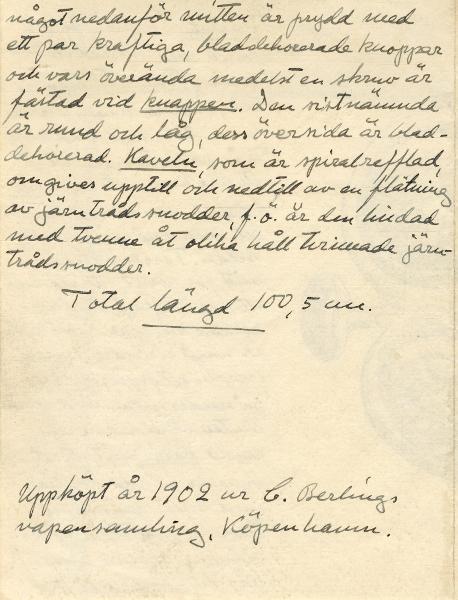 något nedanför mitten är prydd med
ett par kraftiga, bladdekorerade knoppar
och vars överända medelst en skruv är
fästad vid knappen. Den sistnämnda
är rund och låg, dess översida är blad-
dekorerad. Kaveln, som är spiralrefflad,
omgives upptill och nedtill av en flätning
av järntrådssnodder, f.ö. är den lindad
med tvenne åt olika håll tvinnade järn-
trådssnodder.
Total längd 100,5 cm.
Uppköpt år 1902 ur C. Berlings
vapensamling, Köpenhavn.